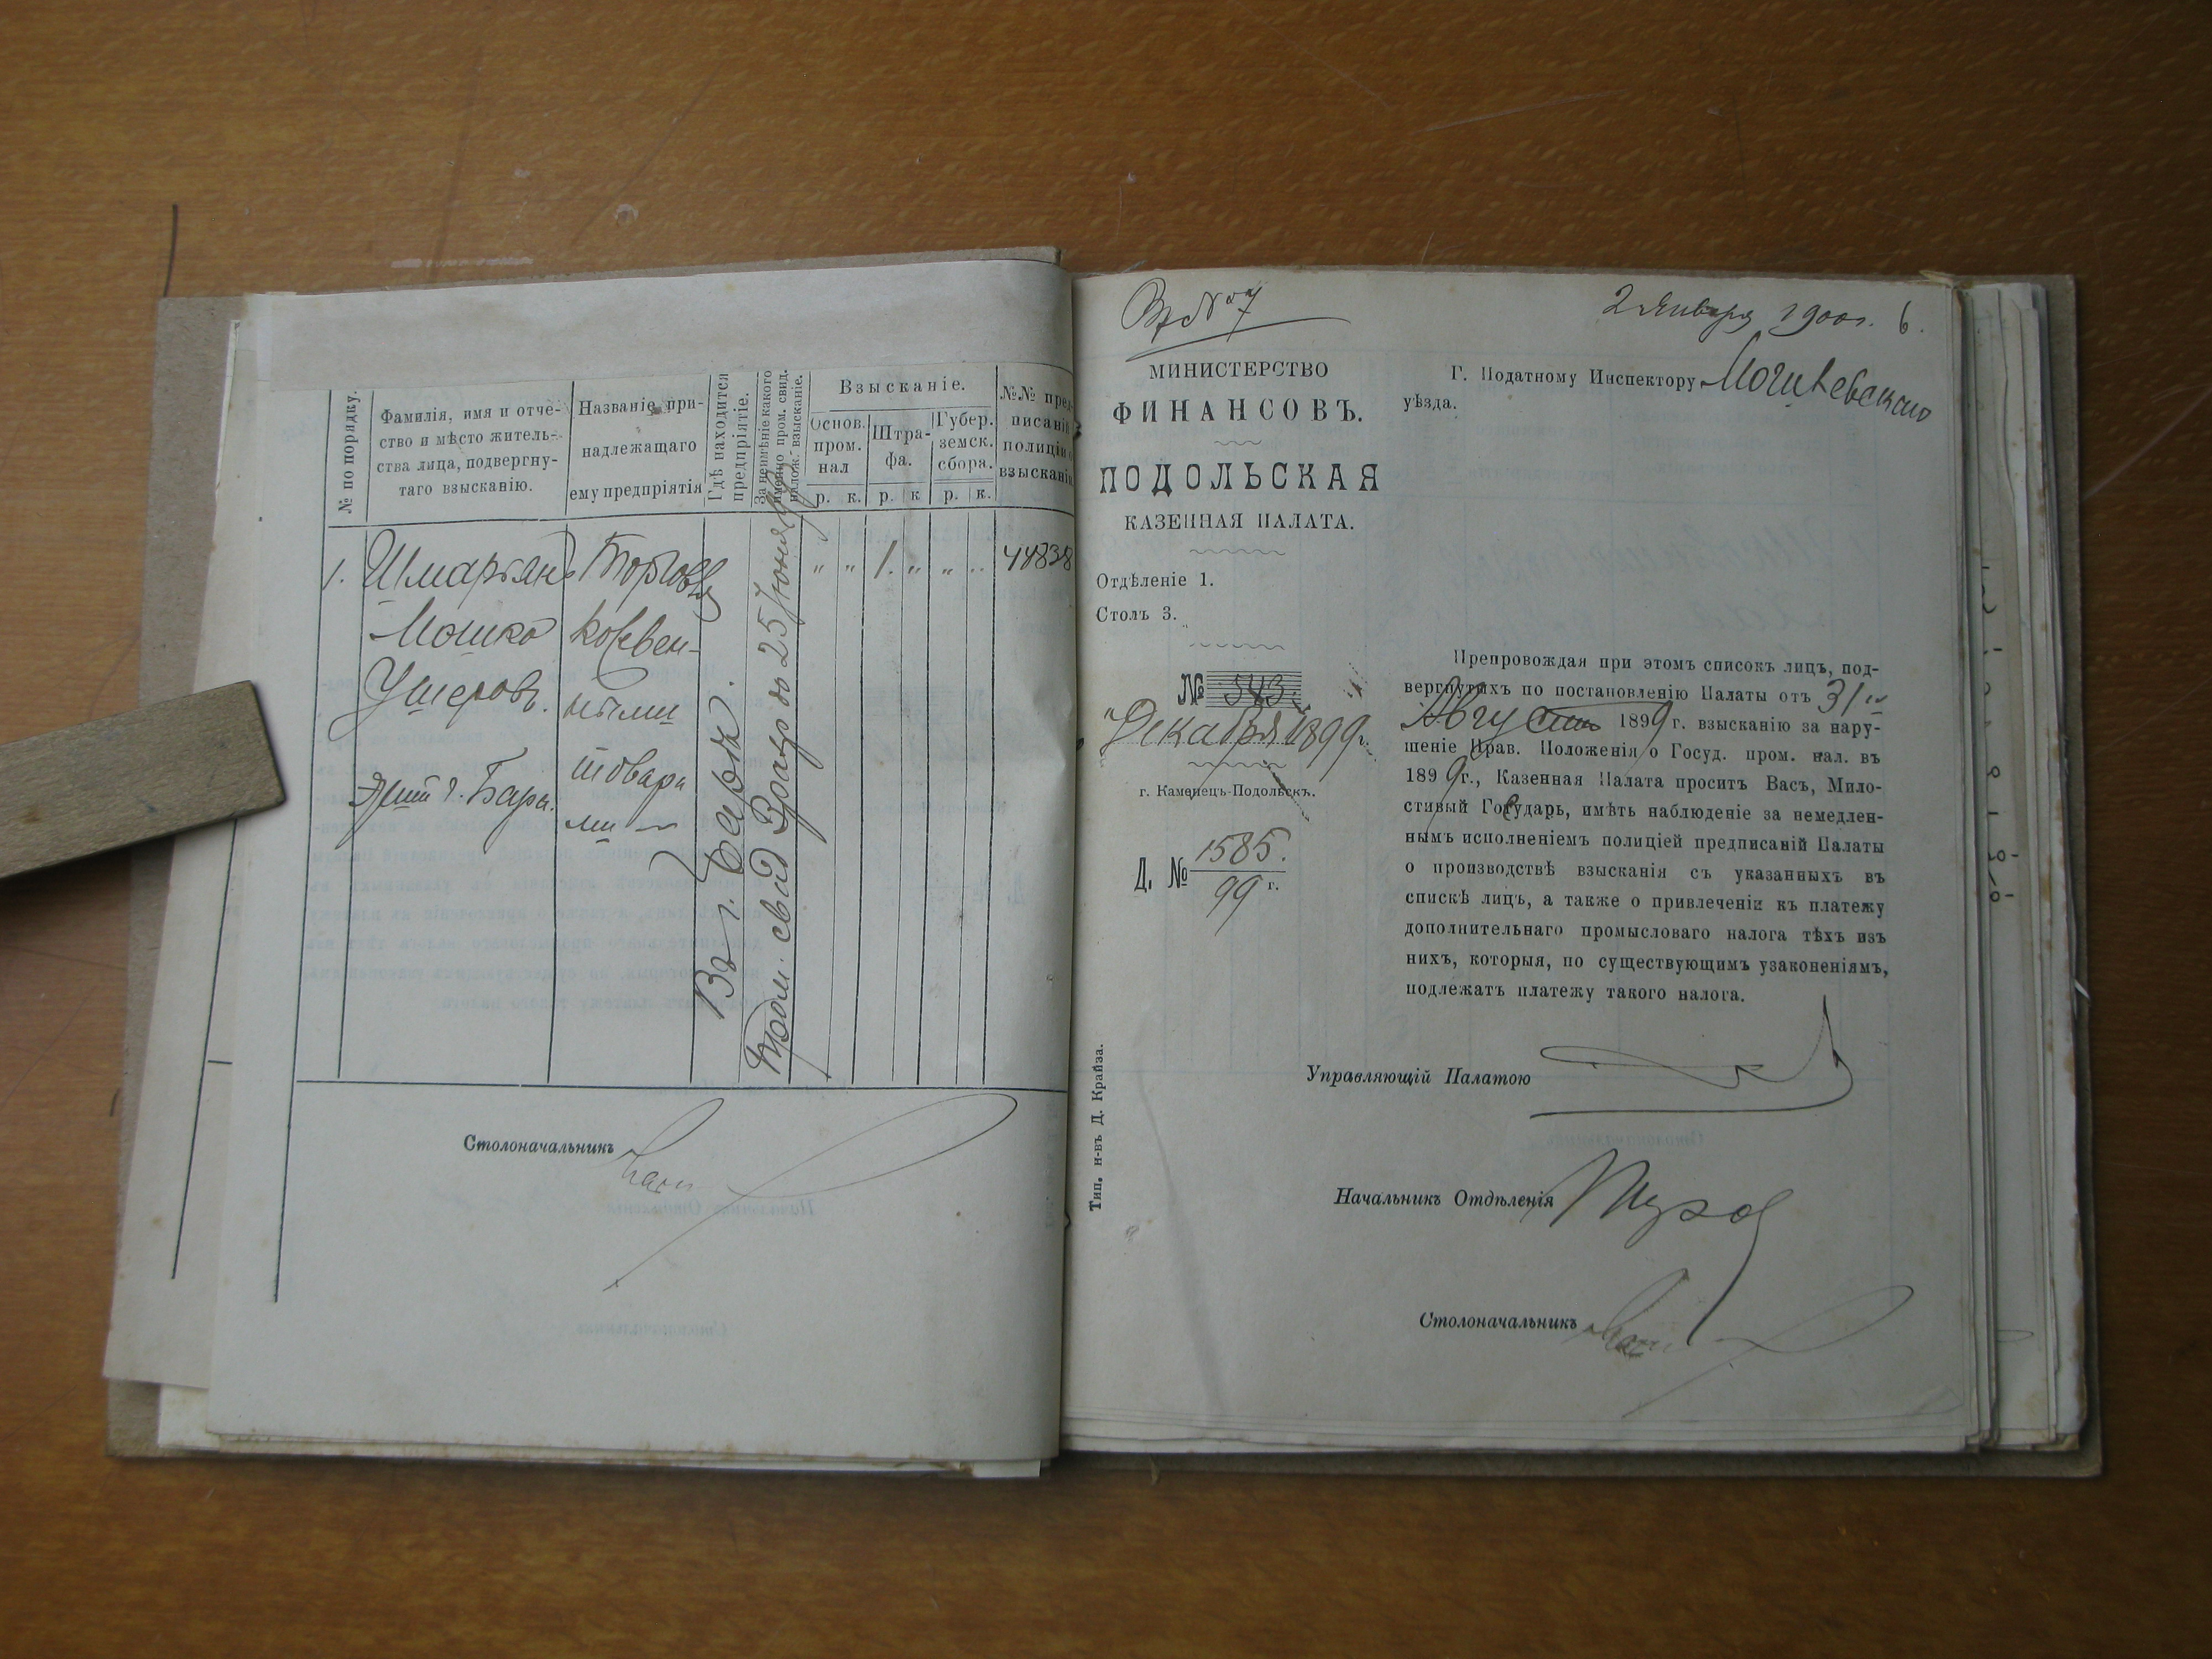 № по порядку.
Фамилія, имя и отче-
ство и мѣсто житель-
ства лица, подвергну-
таго взысканію.
Названіе при-
надлежащаго
ему предпріятія
Гдѣ находится
предпріятіе.
За неимѣніе какого
именно пром. свид.
налож. взысканіе.
Взысканіе.
Основ.
пром.
нал
Штра-
фа.
Губер.
земск.
сбора.
р. к. р. к р. к.
№№ пред-
писаній
полиціи о
взысканіи
1.
Шмаргян
Мошко
Ушеровъ.
Торговля
кожевен-
ными
товара
ми
Въ г. Барѣ.
Пром. свид 3 разр до 25 Іюня
" " 1. " " "
44838
Столоначальникъ
Вх № 7
2 Января 1900 г. 6.
МИНИСТЕРСТВО
ФИНАНСОВЪ.
ПОДОЛЬСКАЯ
КАЗЕННАЯ ПАЛАТА.
Отдѣленіе 1.
Столъ 3.
№ 543.
Декабря 1899 г.
г. Каменецъ-Подольскъ.
Д. № 1585.
99 г.
Тип. н-въ Д. Крайза.
Г. Податному Инспектору Могилевскаго
уѣзда.
Препровождая при этомъ списокъ лицъ, под-
вергнутыхъ по постановленію Палаты отъ 31
Августа 1899 г. взысканію за нару-
шеніе Прав. Положенія о Госуд. пром. нал. въ
1899 г., Казенная Палата проситъ Васъ, Мило-
стивый Государь, имѣть наблюденіе за немедлен-
нымъ исполненіемъ полиціей предписаній Палаты
о производствѣ взысканія съ указанныхъ въ
спискѣ лицъ, а также о привлеченіи къ платежу
дополнительнаго промысловаго налога тѣхъ изъ
нихъ, которыя, по существующимъ узаконеніямъ,
подлежатъ платежу такого налога.
Управляющій Палатою
Начальникъ Отдѣленія
Столоначальникъ